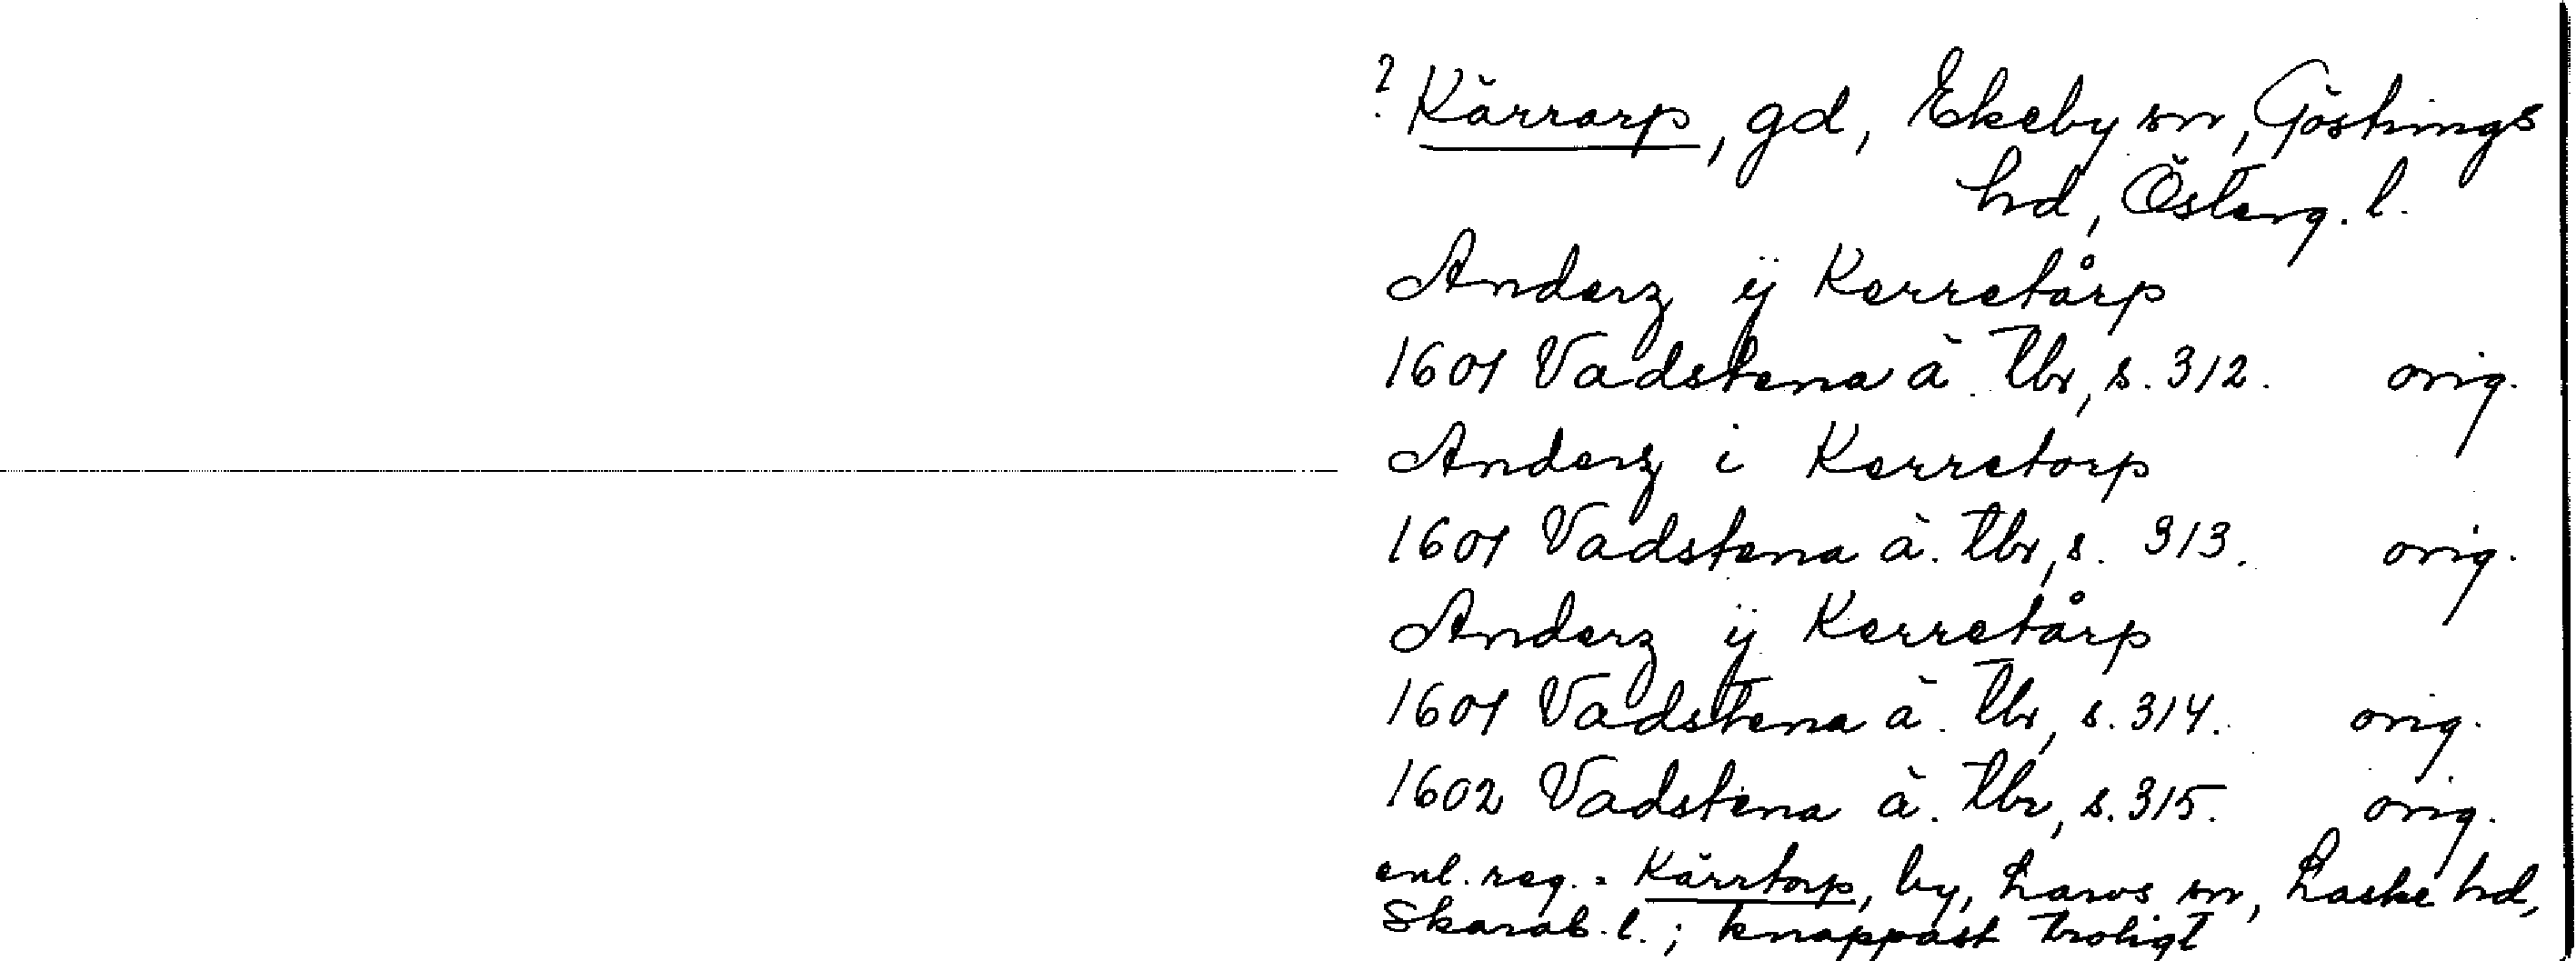 ? Kärrarp, gd, Ekeby sn, Göstrings
hd, Österg. l.
Anderz ÿ Kerretårp
1601 Vadstena ä. tbr, s. 312. orig.
Anderz i Kerretorp
1601 Vadstena ä. tbr, s. 313. orig.
Anderz ÿ Kerretårp
1601 Vadstena ä. tbr, s. 314. orig.
1602 Vadstena ä. tbr, s. 315. orig.
enl. reg. = Kärrtorp, by, Larvs sn, Laske hd,
Skarab. l.; knappast troligt